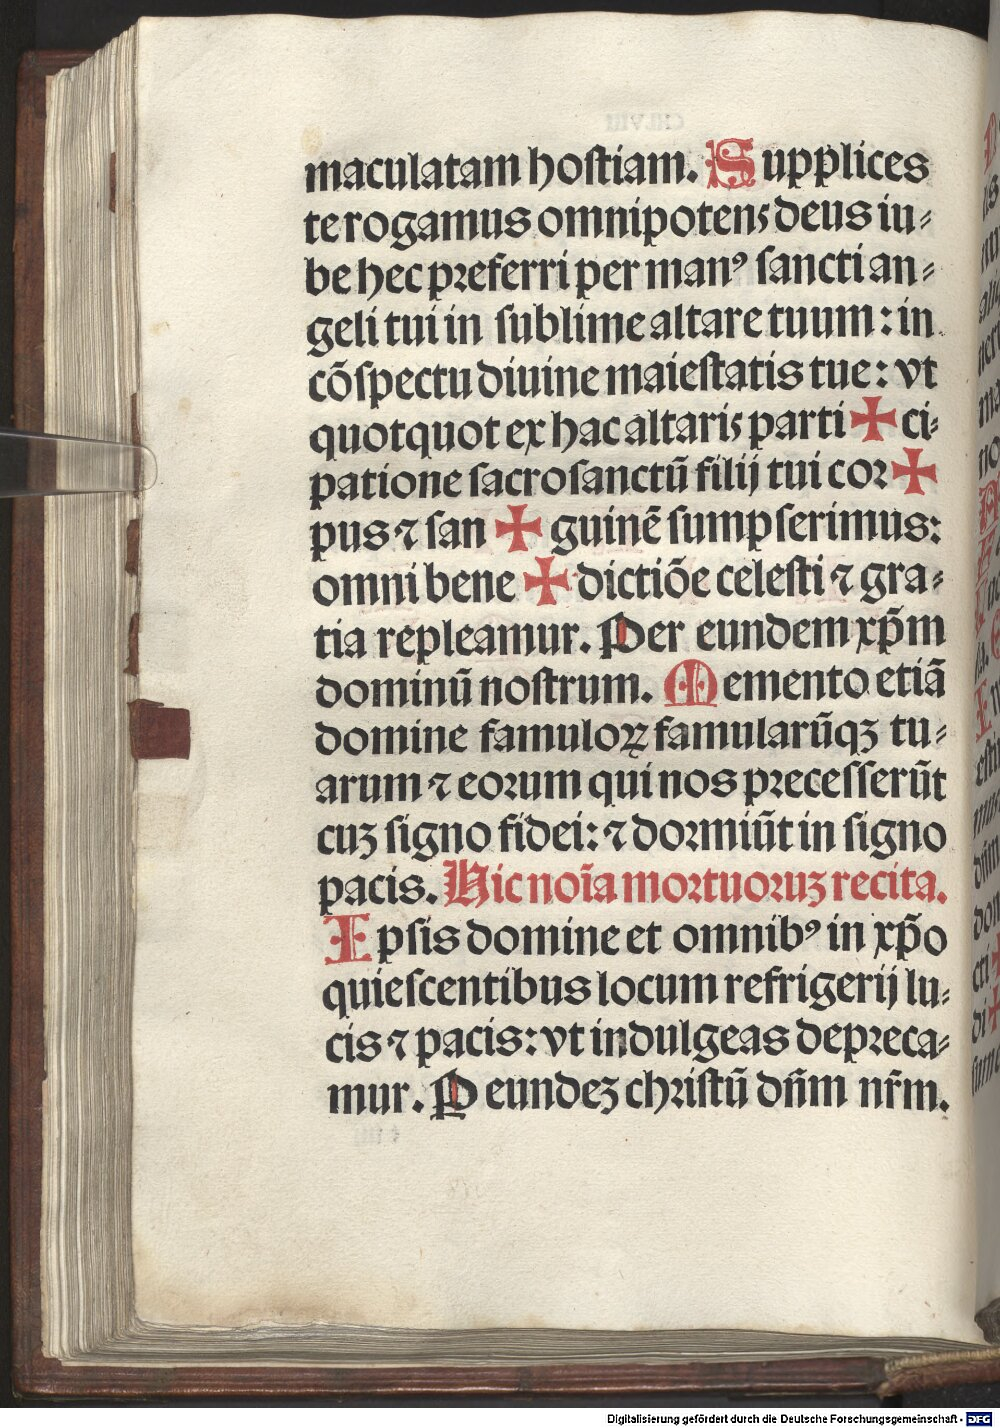 maculatam hostiam. Supplices
te rogamus omnipotens deus iu⸗
be hec preferri per manꝰ sancti an⸗
geli tui in sublime altare tuum: in
cōspectu diuine maiestatis tue: vt
quotquot ex hac altaris parti ✠ ci⸗
patione sacrosanctū filij tui cor ✠
pus ⁊ san ✠ guinē sumpserimus:
omni bene ✠ dictiōe celesti ⁊ gra⸗
tia repleamur. Per eundem xp̄m
dominū nostrum. Memento etiā
domine famuloꝝ famularūqꝫ tu⸗
arum ⁊ eorum qui nos precesserūt
cuꝫ signo fidei: ⁊ dormiūt in signo
pacis. Hic noīa mortuoruꝫ recita.
Ipsis domine et omnibꝰ in xp̄o
quiescentibus locum refrigerij lu⸗
cis ⁊ pacis: vt indulgeas depreca⸗
mur. Ꝑ eundeꝫ christū dn̄m nr̄m.
Digitalisierung gefördert durch die Deutsche Forschungsgemeinschaft - DFG